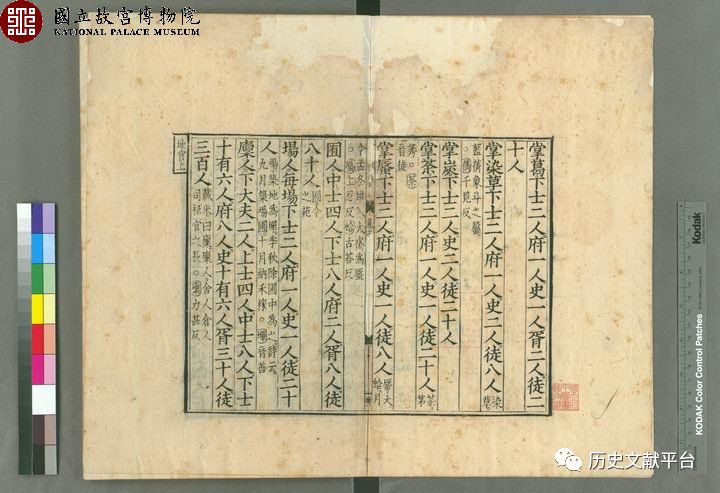 國立故宮博物院
NATIONAL PALACE MUSEUM
掌葛下士二人府一人史一人胥二人徒二
十人
掌染草下士二人府一人史二人徒八人染草
藍蒨象斗之屬
。蒨千見反
掌炭下士二人史二人徒二十人
掌荼下士二人府一人史一人徒二十人荼茅
莠。荼
音徒
掌蜃下士二人府一人史一人徒八人蜃大蛤月
令孟冬雉入大水爲蜃
。蜃上忍反蛤古荅反
囿人中士四人下士八人府二人胥八人徒
八十人囿今之苑
場人每場下士二人府一人史一人徒二十
人場築地爲墠季秋除圃中爲之詩云
九月築場圃十月納禾稼。墠音善
廩人下大夫二人上士四人中士八人下士
十有六人府八人史十有六人胥三十人徒
三百人藏米曰廩廩人舍人倉人
司祿官之長。廩力甚反
地官上
Kodak
KODAK Color Control Patches
历史文献平台